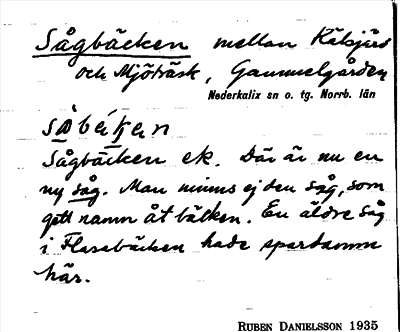 Sågbäcken mellan Kälsjärv
och Mjöträsk, Gammelgården
Nederkalix sn o. tg. Norrb. län
såbäken
Sågbäcken ek. Där är nu en
ny såg. Man minns ej den såg, som
gett namn åt bäcken. En äldre såg
i Flasabäcken hade spardamm
här.
RUBEN DANIELSSON 1935